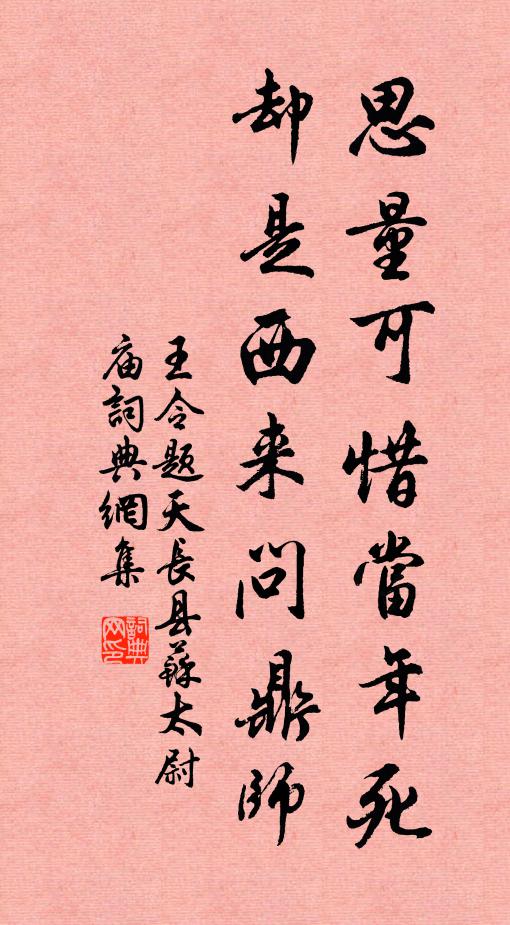 思量可惜當年死
却是西来问鼎師
王令题天長县蘇太尉
庙詞典網集
詞典网印